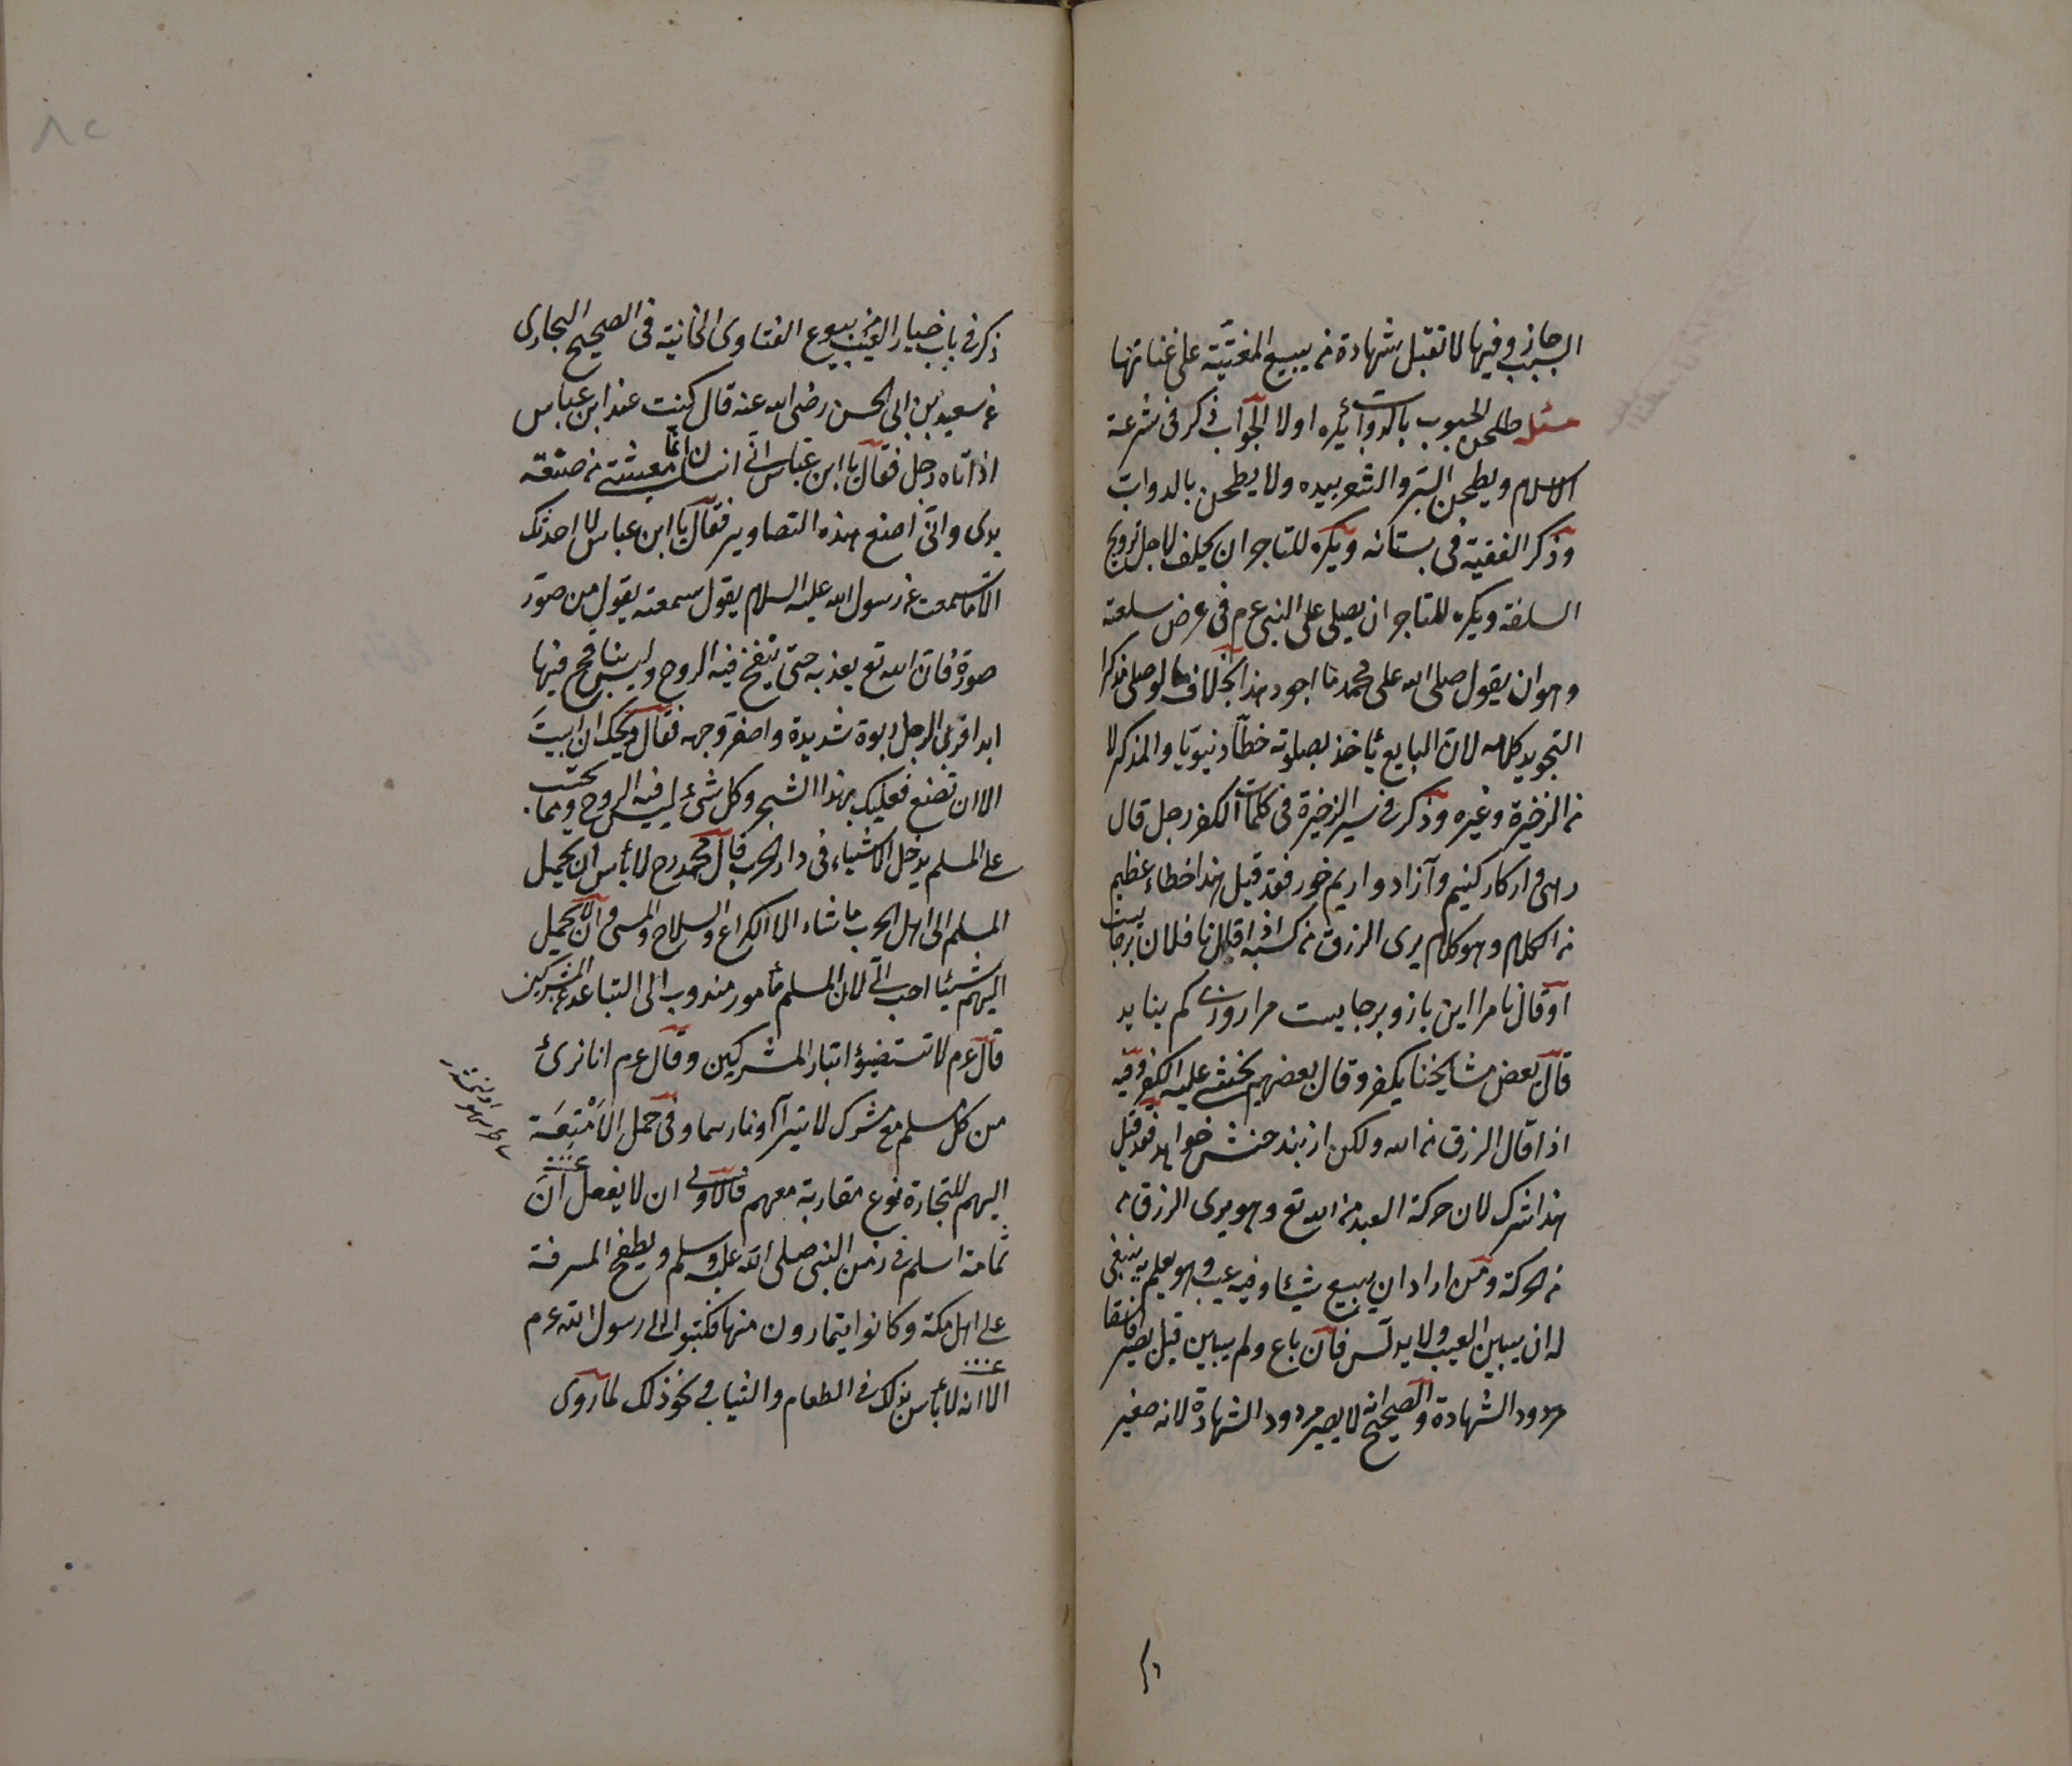 السبب جاز وفيها لا تقبل شهادة من يبيع المغنية على غنائها
مسئله طحن الحبوب بالدواب أيكره اولا الجواب ذكر فى شرعة
الاسلام ويطحن البر والشعير بيده ولا يطحن بالدواب
وذكر الفقيه فى بستانه ويكره للتاجر ان يحلف لاجل ترويج
السلعة ويكره للتاجر ان يصلى على النبى عم فى عرض سلعته
وهو ان يقول صلى الله على محمد ما اجود هذا بخلاف ما لو صلى مذكرا
لتجويد كلامه لان البايع يأخذ بصلوته حطا دنيويا والمذكر لا
من الذخيرة وغيره وذكر فى سير الذخيرة فى كلمات الكفر رجل قال
كار كنيم وآزاد واريم خور فقد قيل هذا خطاء عظيم
من الكلام وهو كلام يرى الرزق من كسبه اذا قال نا فلان برجايست
او قال نا مرا اين بازو برجايست مرا روزى كم نيايد
قال بعض مشايخنا يكفر وقال بعضهم يخشى عليه الكفر وفيه
اذا قال الرزق من الله ولكن از بنده جنبش خواهد فقد قيل
هذا شرك لان حركة العبد من الله تع وهو يرى الرزق من
من الحركة ومن اراد ان يبيع شيئا وفيه عيب وهو يعلم به ينبغى
له ان يبين العيب ولا يدلس فان باع ولم يبين قيل يصير فاسقا
مردود الشهادة والصحيح انه لا يصير مردود الشهادة لانه صغير
ذكر فى باب خيار العيب من بيوع الفتاوى الخانية فى الصحيح البخارى
عن سعيد بن ابى الحسن رضى الله عنه قال كنت عند ابن عباس
اذ اتاه رجل فقال يا ابن عباس انى انسان انما معيشتى من صنعة
يدى وانى اصنع هذه التصاوير فقال يا ابن عباس لا احدثك
الا ما سمعت من رسول الله عليه السلام يقول سمعته يقول من صور
صورة فان الله تع يعذبه حتى ينفخ فيه الروح وليس بنافخ فيها
ابدا فربى الرجل ربوة شديدة واصفر وجهه فقال ويحك ان ابيت
الا ان تصنع فعليك بهذا الشجر وكل شئ ليس فيه الروح ومما يجب
على المسلم يدخل الاشياء فى دار الحرب قال محمد رح لا بأس ان يحمل
المسلم الى اهل الحرب ما شاء الا الكراع والسلاح والسبى وان لا يحمل
اليهم شيئا احب الى لان المسلم مأمور مندوب الى التباعد عن المشركين
قال عم لا تستضيؤا بنار المشركين وقال عم انا برئ
من كل مسلم مع مشرك لا تترآا ونارهما وفى حمل الامتعة
اليهم للتجارة نوع مقاربة معهم فالاولى ان لا يفعل ان
ثمامة اسلم فى زمن النبى صلى الله عليه وسلم
على اهل مكة وكانوا يتمارون منها فكتبوا الى رسول الله عم
الا انه لا بأس بذلك فى الطعام والثياب ونحو ذلك لما روى